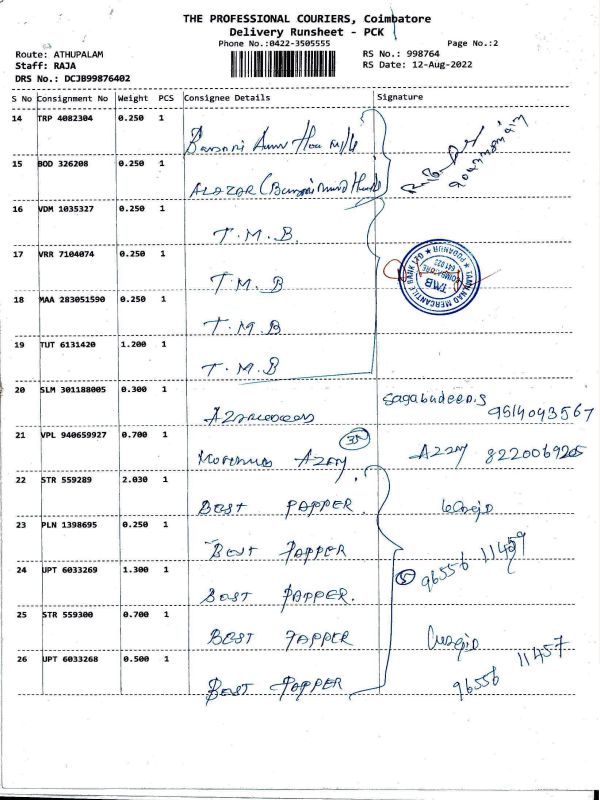 THE PROFESSIONAL COURIERS, Coimbatore
Delivery Runsheet - PCK
Phone No.:0422-3505555 Page No.:2
Route: ATHUPALAM RS No.: 998764
Staff: RAJA RS Date: 12-Aug-2022
DRS No.: DCJB99876402
S No Consignment No Weight PCS Consignee Details Signature
14 TRP 4082304 0.250 1
15 BOD 326208 0.250 1 ALAZAR
16 VDM 1035327 0.250 1 T.M.B.
17 VRR 7104074 0.250 1 T.M.B
18 MAA 283051590 0.250 1 T.M.B
19 TUT 6131420 1.200 1 T.M.B
TAMILNAD MERCANTILE BANK LTD
PODANUR
TMB
COIMBATORE
641 023
20 SLM 301188005 0.300 1 Sagabudeen.S
9514043567
21 VPL 940659927 0.700 1 AZAY AZAY 8220069205
22 STR 559289 2.030 1 BEST PAPPER
23 PLN 1398695 0.250 1 BEST PAPPER
24 UPT 6033269 1.300 1 BEST PAPPER. 96556 11459
25 STR 559300 0.700 1 BEST PAPPER
26 UPT 6033268 0.500 1 BEST PAPPER 96556 11457